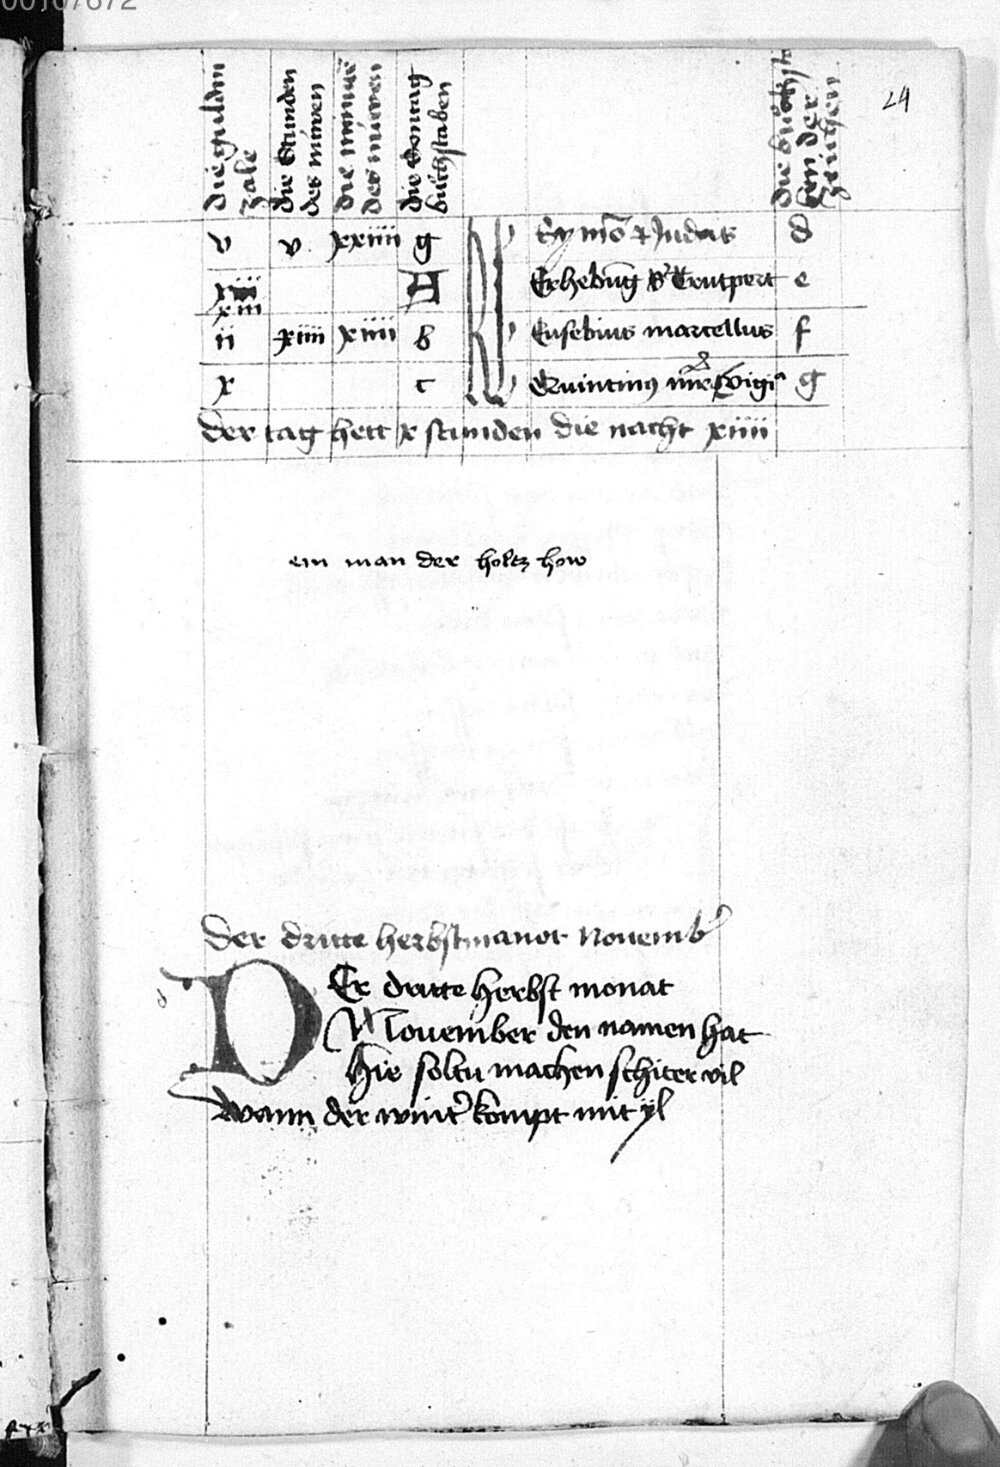 00107672
24
die guldin zale
die Stunden des nuwen
die minnut des nuwen
die Sontag buchstaben
die buchsta ben der zeichen
v v xxiiii g Symō & Judas d
xiii A Erhebūg s' Trutpert e
ii xiiii xiiii b Eusebius marcellus f
x c Quintinus vigi g
der tag hett x stunden die nacht xiiii
ein man der holtz how
der dritte herbstmanot Nouemb'
DEr dritte herbst monat
Nouember den namen hat
hie soltu machen schiter vil
wann der wint' kompt mit yl